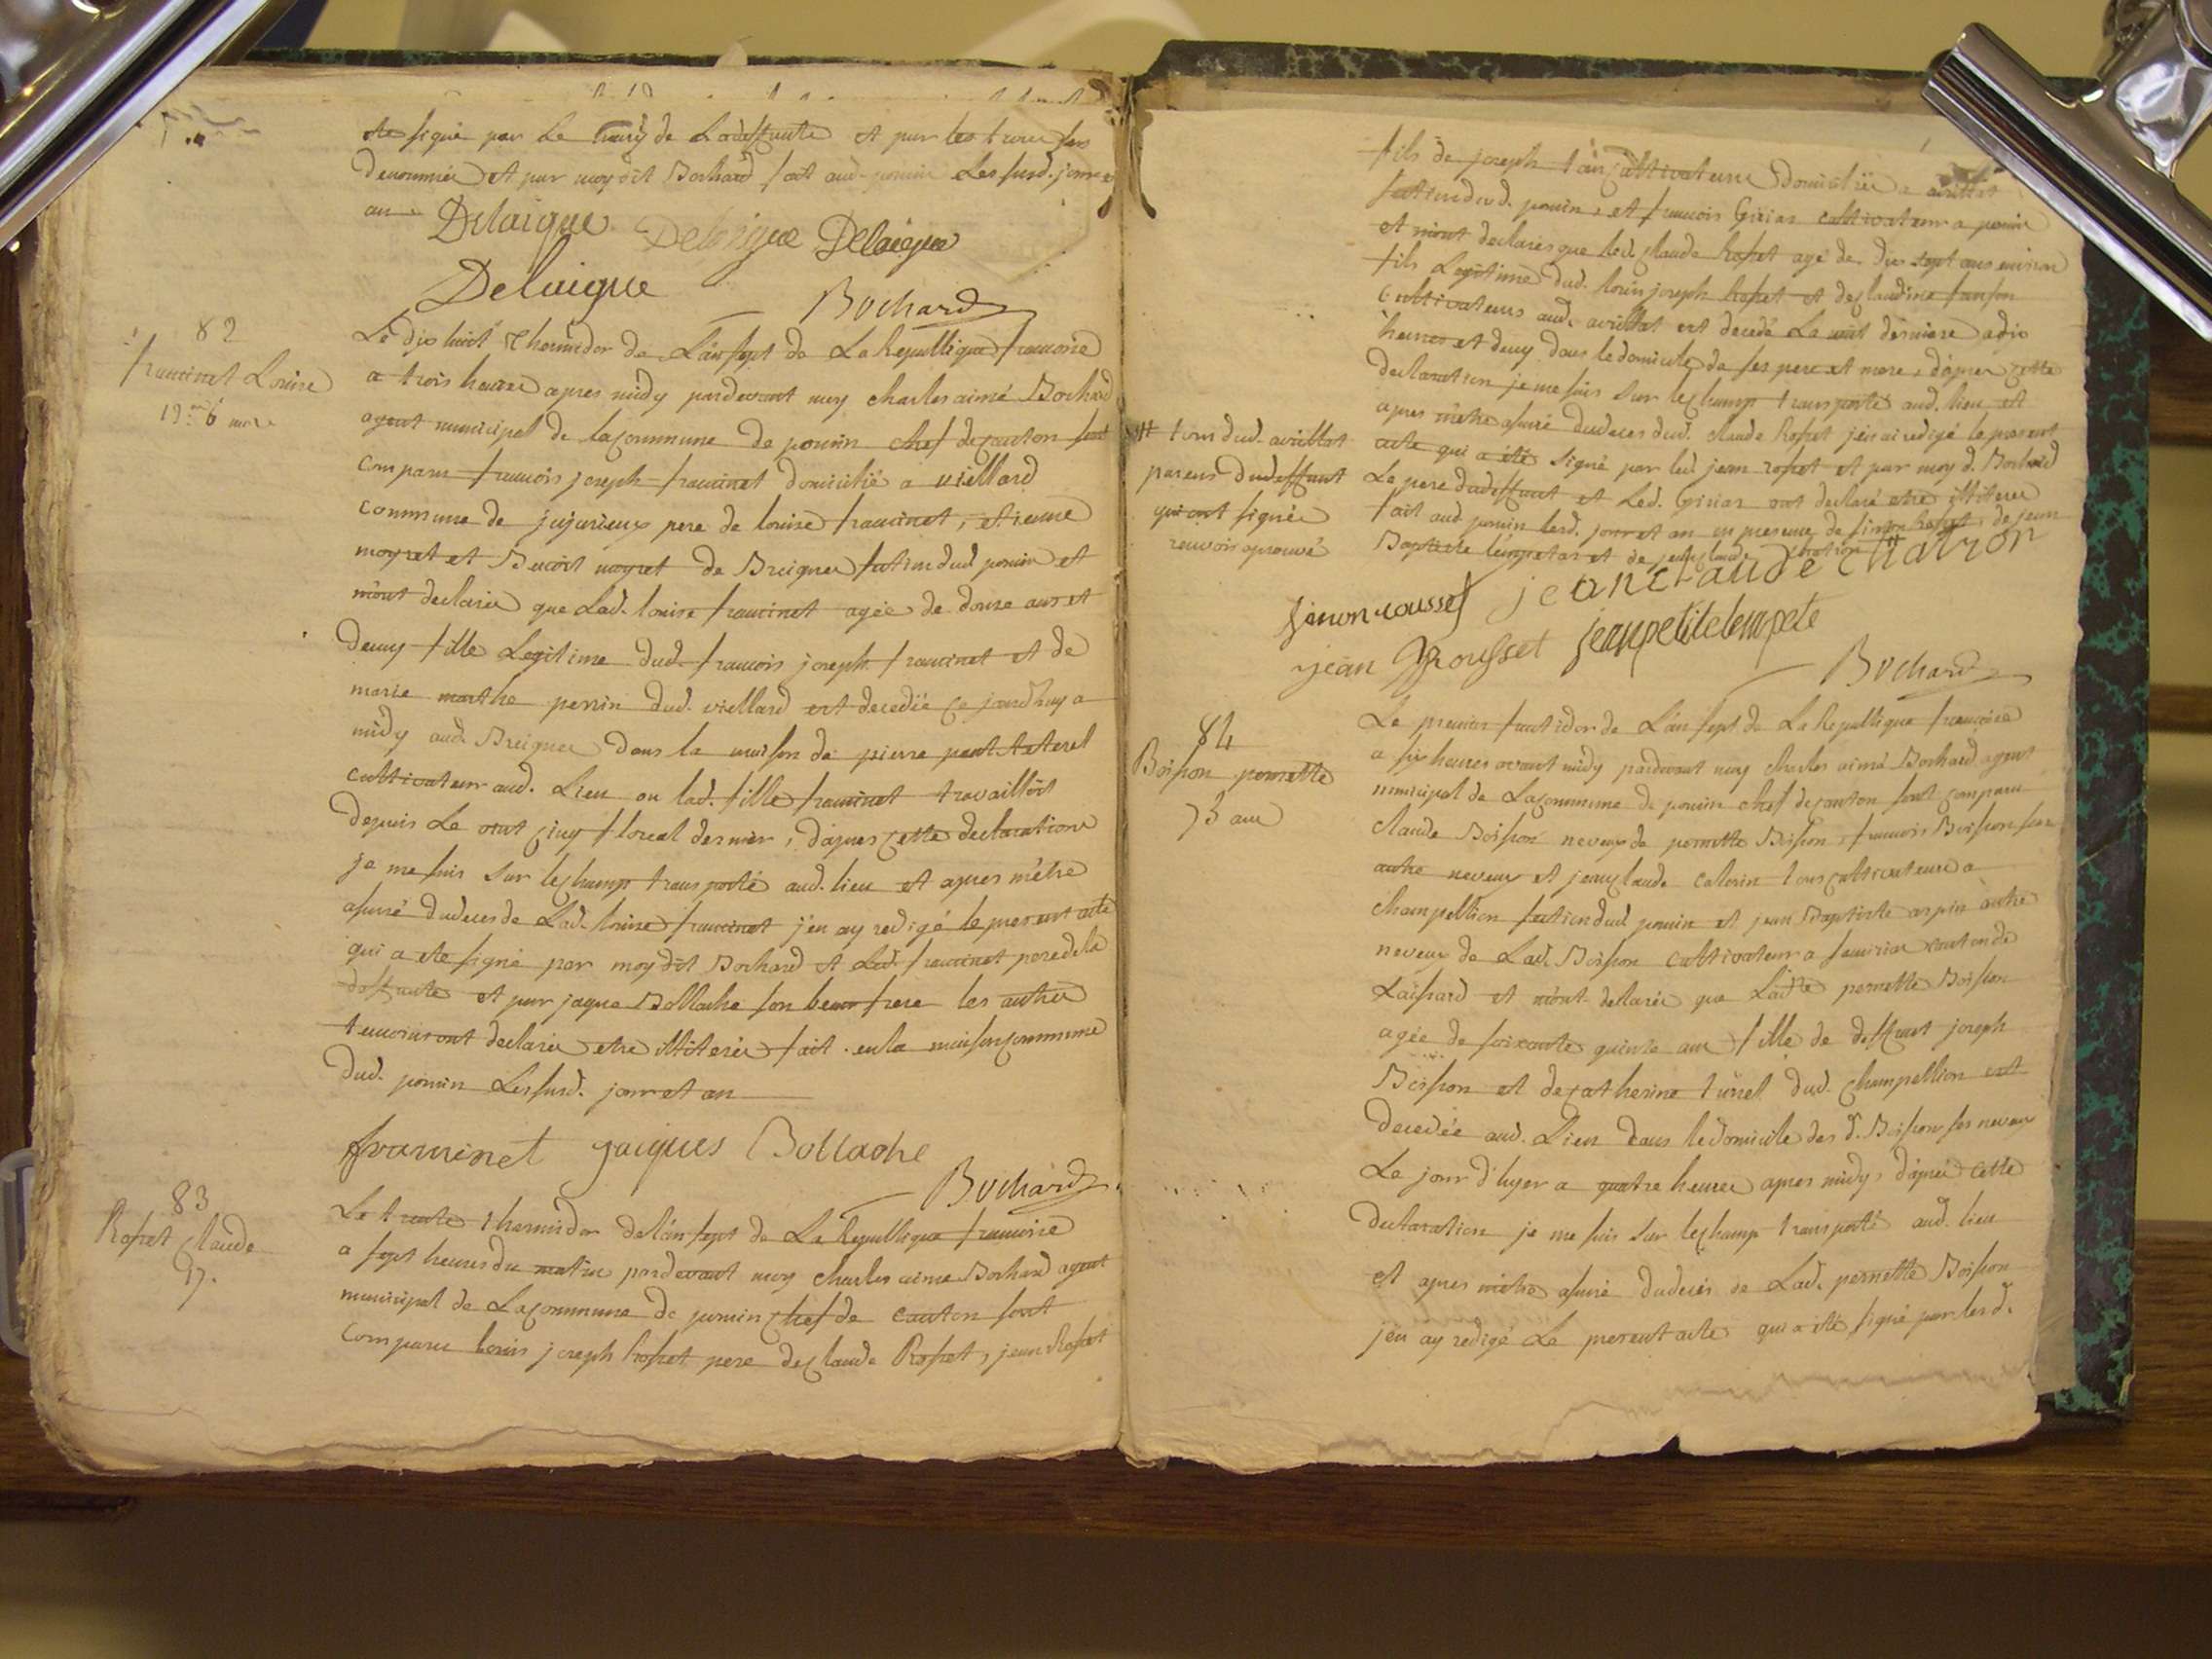 ete signé par le mary de Ladeffunte et par les temoins sus
denommés et par moy dit Bochard fait aud. poncin Les susd. jour et
an
Delaigue Delaigue Delaigue
Delaigue
Bochard
82
francinet Louise
12 ans 6 mois
Le dix huit Thermidor de L'an sept de La Republique francoise
a trois heures apres midy pardevant moy charles aimé Bochard
agent municipal de la commune de poncin chef de canton sont
comparu francois joseph francinet domicilié a vieillard
commune de jujurieux pere de louise francinet, etienne
moyret et Benoit moyret de Breignes section dud poncin et
m'ont declarés que Lad. louise francinet agée de douze ans et
demy fille Legitime dud. francois joseph francinet et de
marie marthe perrin dud. vieillard est decedée ce jourd'huy a
midy aud. Breignes dans la maison de pierre
cultivateur aud. Lieu ou lad. fille francinet travailloit
depuis Le vint cinq floreal dernier, d'apres cette declaration
je me suis sur le champ transporté aud. lieu et apres m'etre
assuré du deces de Lad. louise francinet j'en ay redigé le present acte
qui a ete signé par moy dit Bochard et Led. francinet pere de la
deffunte et par jaque Bollache son beau frere les autres
temoins ont declarés etre illiterés fait en la maison commune
dud. poncin Les susd. jour et an
francinet jacques Bollache
Bochard
83
Rosset Claude
17.
Le trente thermidor de l'an sept de La Republique francoise
a sept heures du matin pardevant moy charles aimé Bochard agent
municipal de La commune de poncin chef de canton sont
comparu louis joseph Rosset pere de claude Rosset, jean Rosset
fils de joseph tous cultivateurs domiciliés a avrillat
section dud. poncin, et francois Girias cultivateur a poncin
et m'ont declarés que led. claude Rosset agé de dix sept ans environ
fils Legitime dud. louis joseph Rosset et de claudine
cultivateurs aud. avrillat est decedé La nuit derniere a dix
heures et demy dans le domicile de ses pere et mere, d'apres cette
declaration je me suis sur le champ transporté aud. lieu et
apres m'etre assuré du deces dud. claude Rosset j'en ai redigé le present
acte qui a été signé par led jean rosset et par moy d. Bochard
Le pere du deffunt et Led. Girias ont declaré etre illiteres
fait aud poncin lesd. jour et an en presence de simon Rosset, de jean
Baptiste et de jean claude chatron #
# tous dud. avrillat
parens du deffunt
qui ont signés
renvois aprouvé
simon rousset jean claude chatron
jean Rousset jean petit
Bochard
84
Boisson pernette
75 ans
Le premier fructidor de L'an sept de La Republique francoise
a six heures avant midy pardevant moy charles aimé Bochard agent
municipal de La commune de poncin chef de canton sont comparu
claude Boisson neveux de pernette Boisson, francois Boisson son
autre neveux et jean claude tous cultivateurs a
champellion section dud poncin et jean Baptiste arpin autre
neveux de Lad. Boisson cultivateur a canton de
Laissard et m'ont declarés que Ladte pernette Boisson
agée de soixante quinze ans fille de deffunt joseph
Boisson et de catherine dud. champellion est
decedée aud. Lieu dans le domicile des d. Boisson ses neveux
Le jour d'hyer a quatre heures apres midy, d'apres cette
declaration je me suis sur le champ transporté aud. lieu
et apres m'etre assuré du deces de Lad. pernette Boisson
j'en ay redigé Le present acte qui a été signé par lesd.